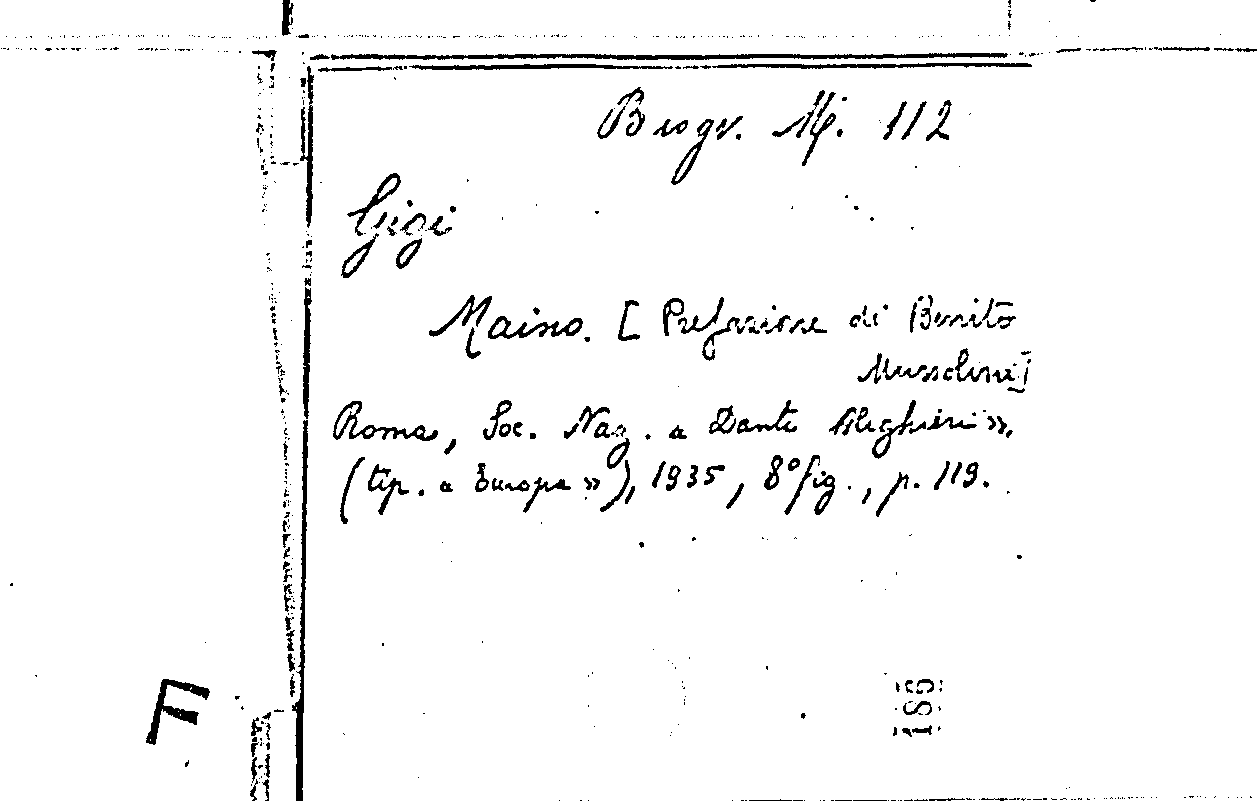 Biogr. M. 112
Gigi
Maino. [Prefazione di Benito
Mussolini]
Roma, Soc. Naz. « Dante Alighieri »,
(tip. « Europa »), 1935, 8° fig., p. 119.
F